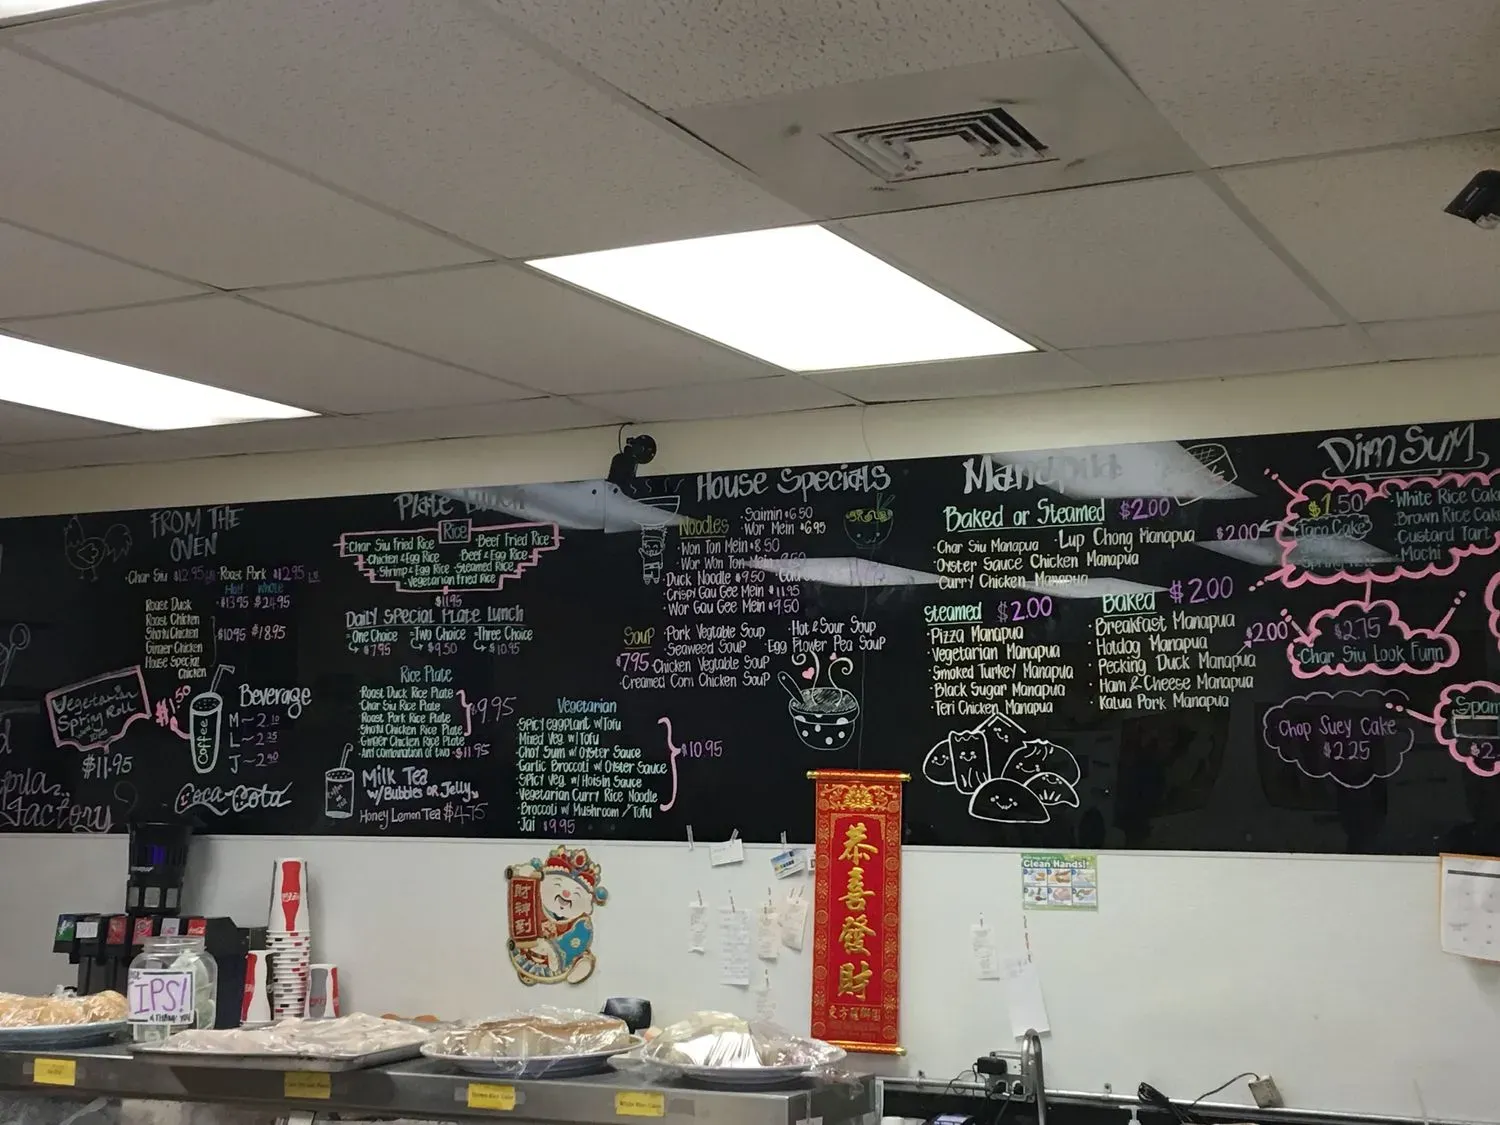 FROM THE
OVEN
Char Siu $12.95 LB · Roast Pork $12.95 LB
Half Whole
Roast Duck $13.95 $24.95
Roast Chicken
Shoyu Chicken
Ginger Chicken
House Special
Chicken
$10.95 $18.95
Vegetarian
Spring Roll
$1.50
$11.95
Coffee
Beverage
M ~ 2.10
L ~ 2.25
J ~ 2.40
Coca-Cola
Factory
Plate Lunch
Rice
·Char Siu Fried Rice ·Beef Fried Rice
·Chicken & Egg Rice ·Beef & Egg Rice
·Shrimp & Egg Rice ·Steamed Rice
·Vegetarian Fried Rice
$11.95
Daily Special Plate Lunch
·One Choice ·Two Choice ·Three Choice
$7.95 $9.50 $10.95
Rice Plate
·Roast Duck Rice Plate
·Char Siu Rice Plate
·Roast Pork Rice Plate
·Shoyu Chicken Rice Plate
·Ginger Chicken Rice Plate
$9.95
·Any Combination of two ·$11.95
Milk Tea
w/Bubbles OR Jelly
Honey Lemon Tea $4.75
Vegetarian
·Spicy eggplant w/Tofu
·Mixed Veg. w/Tofu
·Choy Sum w/ Oyster Sauce
·Garlic Broccoli w/ Oyster Sauce
·Spicy Veg. w/ Hoisin Sauce
·Vegetarian Curry Rice Noodle
·Broccoli w/ Mushroom / Tofu
$10.95
·Jai $9.95
House Specials
Noodles
·Saimin $6.50
·Wor Mein $6.95
·Won Ton Mein $8.50
·Wor Won Ton Mein 9.50
·Duck Noodle $9.50
·Crispy Gau Gee Mein $11.95
·Wor Gau Gee Mein $9.50
Soup
$7.95
·Pork Vegtable Soup ·Hot & Sour Soup
·Seaweed Soup ·Egg Flower Pea Soup
·Chicken Vegtable Soup
·Creamed Corn Chicken Soup
Manapua
Baked or Steamed $2.00
·Char Siu Manapua ·Lup Chong Manapua
·Oyster Sauce Chicken Manapua
·Curry Chicken Manapua
Steamed $2.00
·Pizza Manapua
·Vegetarian Manapua
·Smoked Turkey Manapua
·Black Sugar Manapua
·Teri Chicken Manapua
Baked $2.00
·Breakfast Manapua
·Hotdog Manapua
·Pecking Duck Manapua
·Ham & Cheese Manapua
·Kalua Pork Manapua
Dim Sum
$1.50
·White Rice Cake
·Brown Rice Cake
·Custard Tart
·Mochi
$2.00
Taco Cake
$2.00
$2.75
Char Siu Look Funn
Chop Suey Cake
$2.25
Spam
$2.
財神到
恭喜發財
Clean Hands!
IPS!
THANK YOU